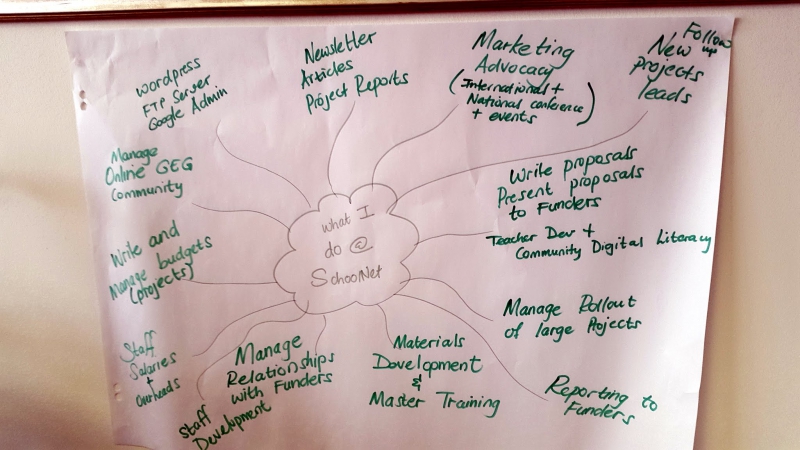 Wordpress
FTP Server
Google Admin
Newsletter
Articles
Project Reports
Marketing
Advocacy
(International +
National conference
+ events)
Follow
up
New
projects
leads
Manage
Online GEG
Community
Write proposals
Present proposals
to Funders
What I
do @
SchoolNet
Teacher Dev +
Community Digital Literacy
Write and
Manage budgets
(projects)
Manage Rollout
of large Projects
Staff
Salaries
+
Overheads
Manage
Relationships
with Funders
Staff
Development
Materials
Development
&
Master Training
Reporting to
Funders